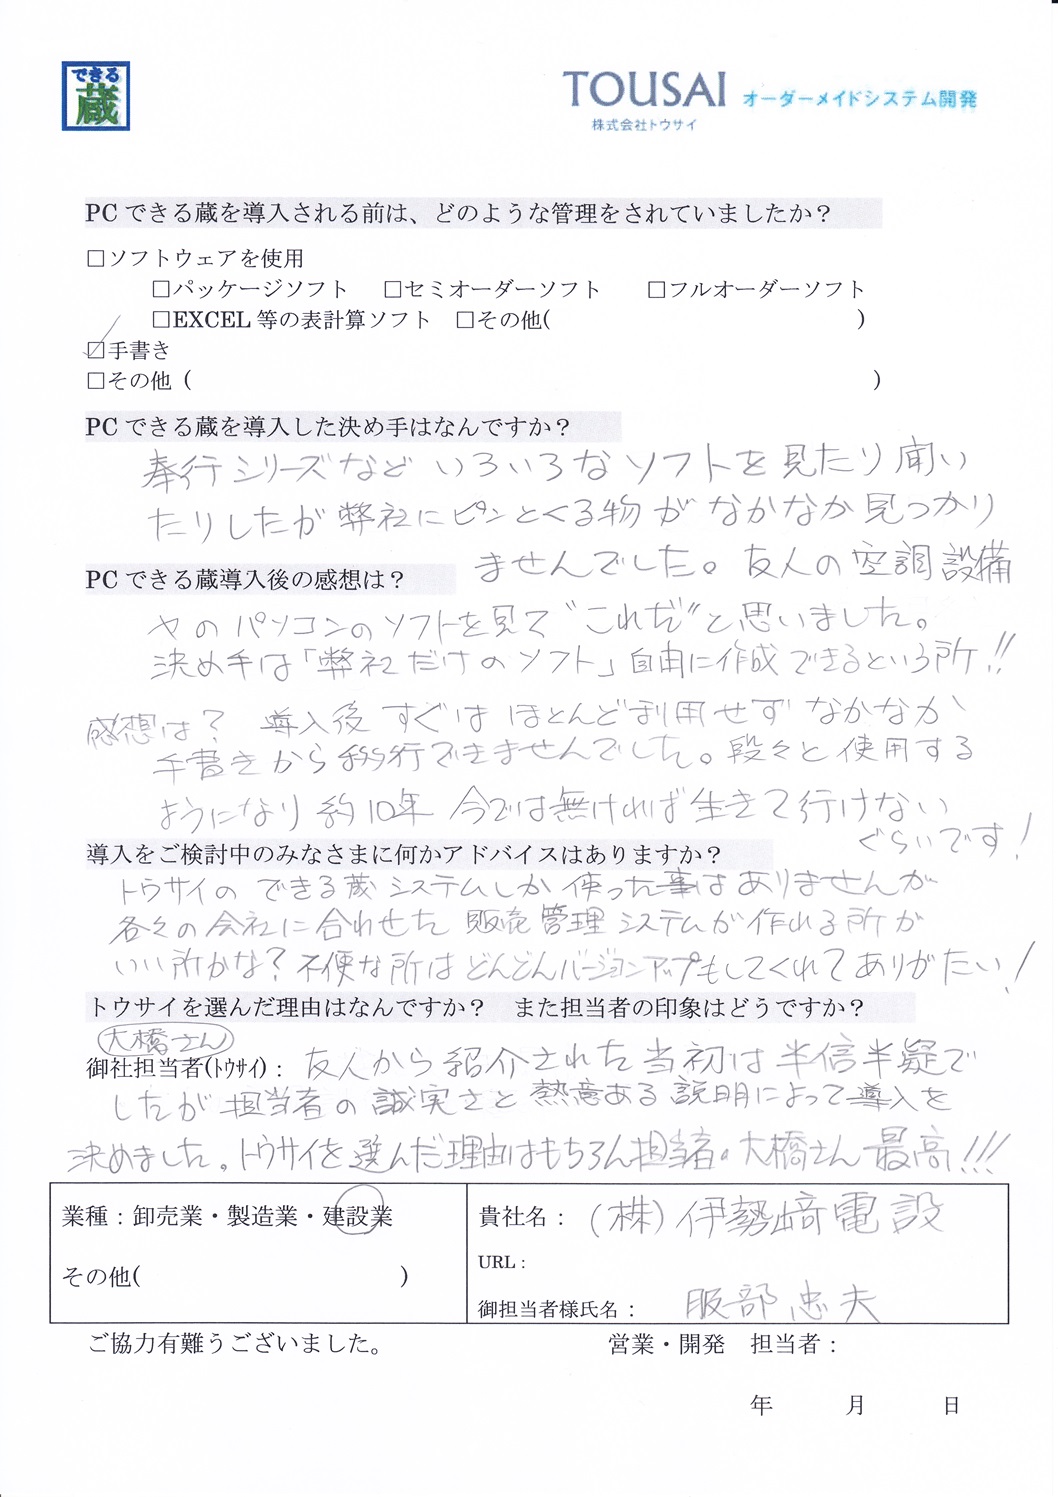 できる
蔵
TOUSAI オーダーメイドシステム開発
株式会社トウサイ
PCできる蔵を導入される前は、どのような管理をされていましたか？
□ソフトウェアを使用
□パッケージソフト □セミオーダーソフト □フルオーダーソフト
□EXCEL等の表計算ソフト □その他( )
☑手書き
□その他 ( )
PCできる蔵を導入した決め手はなんですか？
奉行シリーズなど いろいろなソフトを見たり聞い
たりしたが弊社にピンとくる物がなかなか見つかり
ませんでした。友人の空調設備
PCできる蔵導入後の感想は？
ヤのパソコンのソフトを見て"これだ"と思いました。
決め手は「弊社だけのソフト」自由に作成できるという所!!
感想は？ 導入後すぐはほとんど利用せずなかなか
手書きから移行できませんでした。段々と使用する
ようになり約10年 今では無ければ生きて行けない
ぐらいです！
導入をご検討中のみなさまに何かアドバイスはありますか？
トウサイのできる蔵システムしか使った事はありませんが
各々の会社に合わせた販売管理システムが作れる所が
いい所かな？不便な所はどんどんバージョンアップもしてくれてありがたい！
トウサイを選んだ理由はなんですか？ また担当者の印象はどうですか？
大橋さん
御社担当者(ﾄｳｻｲ)： 友人から紹介された当初は半信半疑で
したが担当者の誠実さと熱意ある説明によって導入を
決めました。トウサイを選んだ理由はもちろん担当者。大橋さん最高!!!
業種：卸売業・製造業・建設業
その他( )
貴社名： (株)伊勢崎電設
URL：
御担当者様氏名： 服部忠夫
ご協力有難うございました。 営業・開発 担当者：
年 月 日